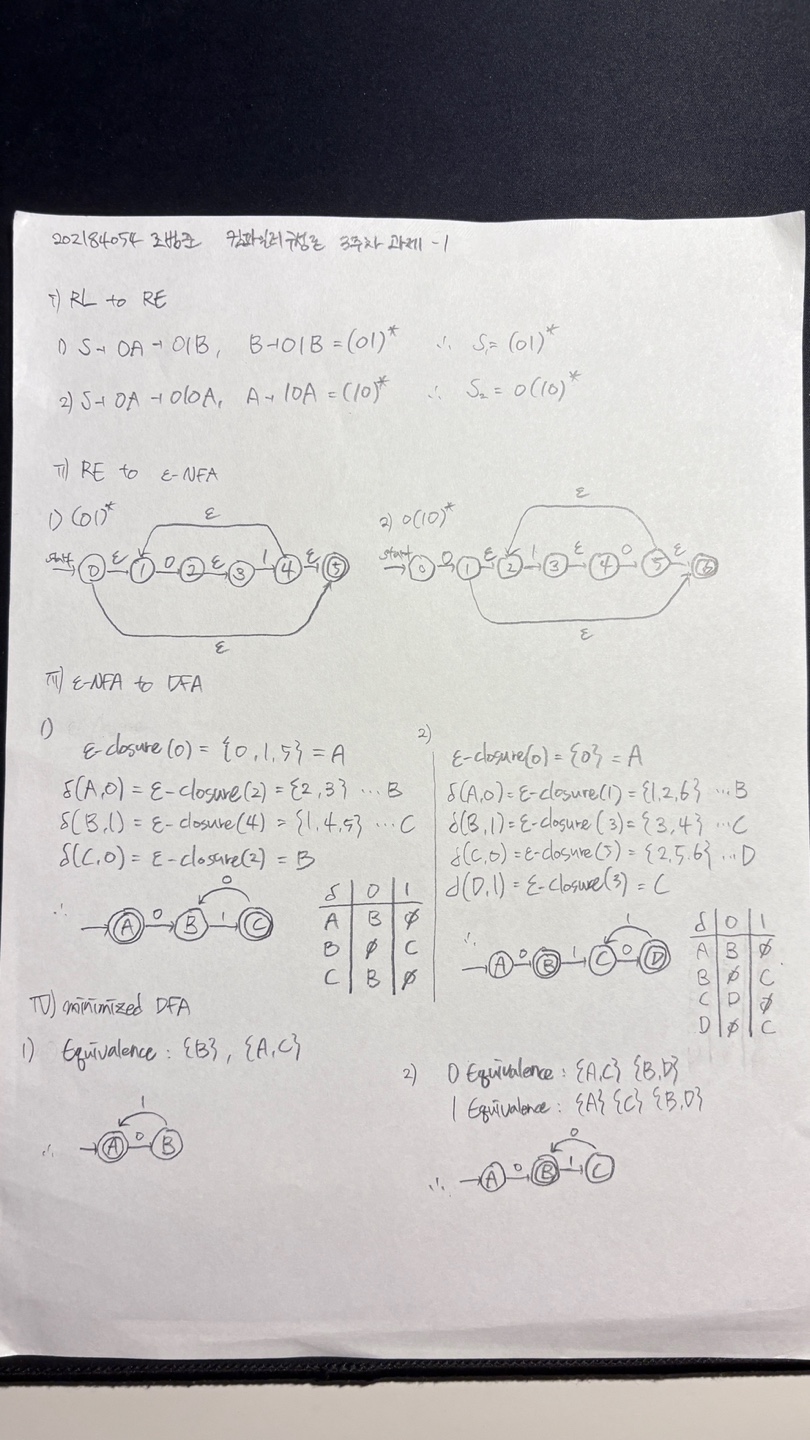 202184054 조방준 컴파일러구성론 3주차 과제 -1
I) RL to RE
1) S→ 0A → 01B, B→01B = (01)* ∴ S₁= (01)*
2) S→ 0A → 010A, A→ 10A = (10)* ∴ S₂ = 0(10)*
II) RE to ε-NFA
1) (01)*
ε
start 0 ε 1 0 2 ε 3 1 4 ε 5
ε
2) 0(10)*
ε
start 0 0 1 ε 2 1 3 ε 4 0 5 ε 6
ε
III) ε-NFA to DFA
1)
ε-closure(0) = {0,1,5} = A
δ(A,0) = ε-closure(2) = {2,3} ... B
δ(B,1) = ε-closure(4) = {1,4,5} ... C
δ(C,0) = ε-closure(2) = B
0
∴ A 0 B 1 C
δ 0 1
A B ∅
B ∅ C
C B ∅
2)
ε-closure(0) = {0} = A
δ(A,0) = ε-closure(1) = {1,2,6} ... B
δ(B,1) = ε-closure(3) = {3,4} ... C
δ(C,0) = ε-closure(5) = {2,5.6} ... D
δ(D,1) = ε-closure(3) = C
1
∴ A 0 B 1 C 0 D
δ 0 1
A B ∅
B ∅ C
C D ∅
D ∅ C
IV) minimized DFA
1) Equivalence : {B}, {A,C}
1
∴ A 0 B
2) 0 Equivalence : {A,C} {B,D}
1 Equivalence : {A} {C} {B,D}
0
∴ A 0 B 1 C